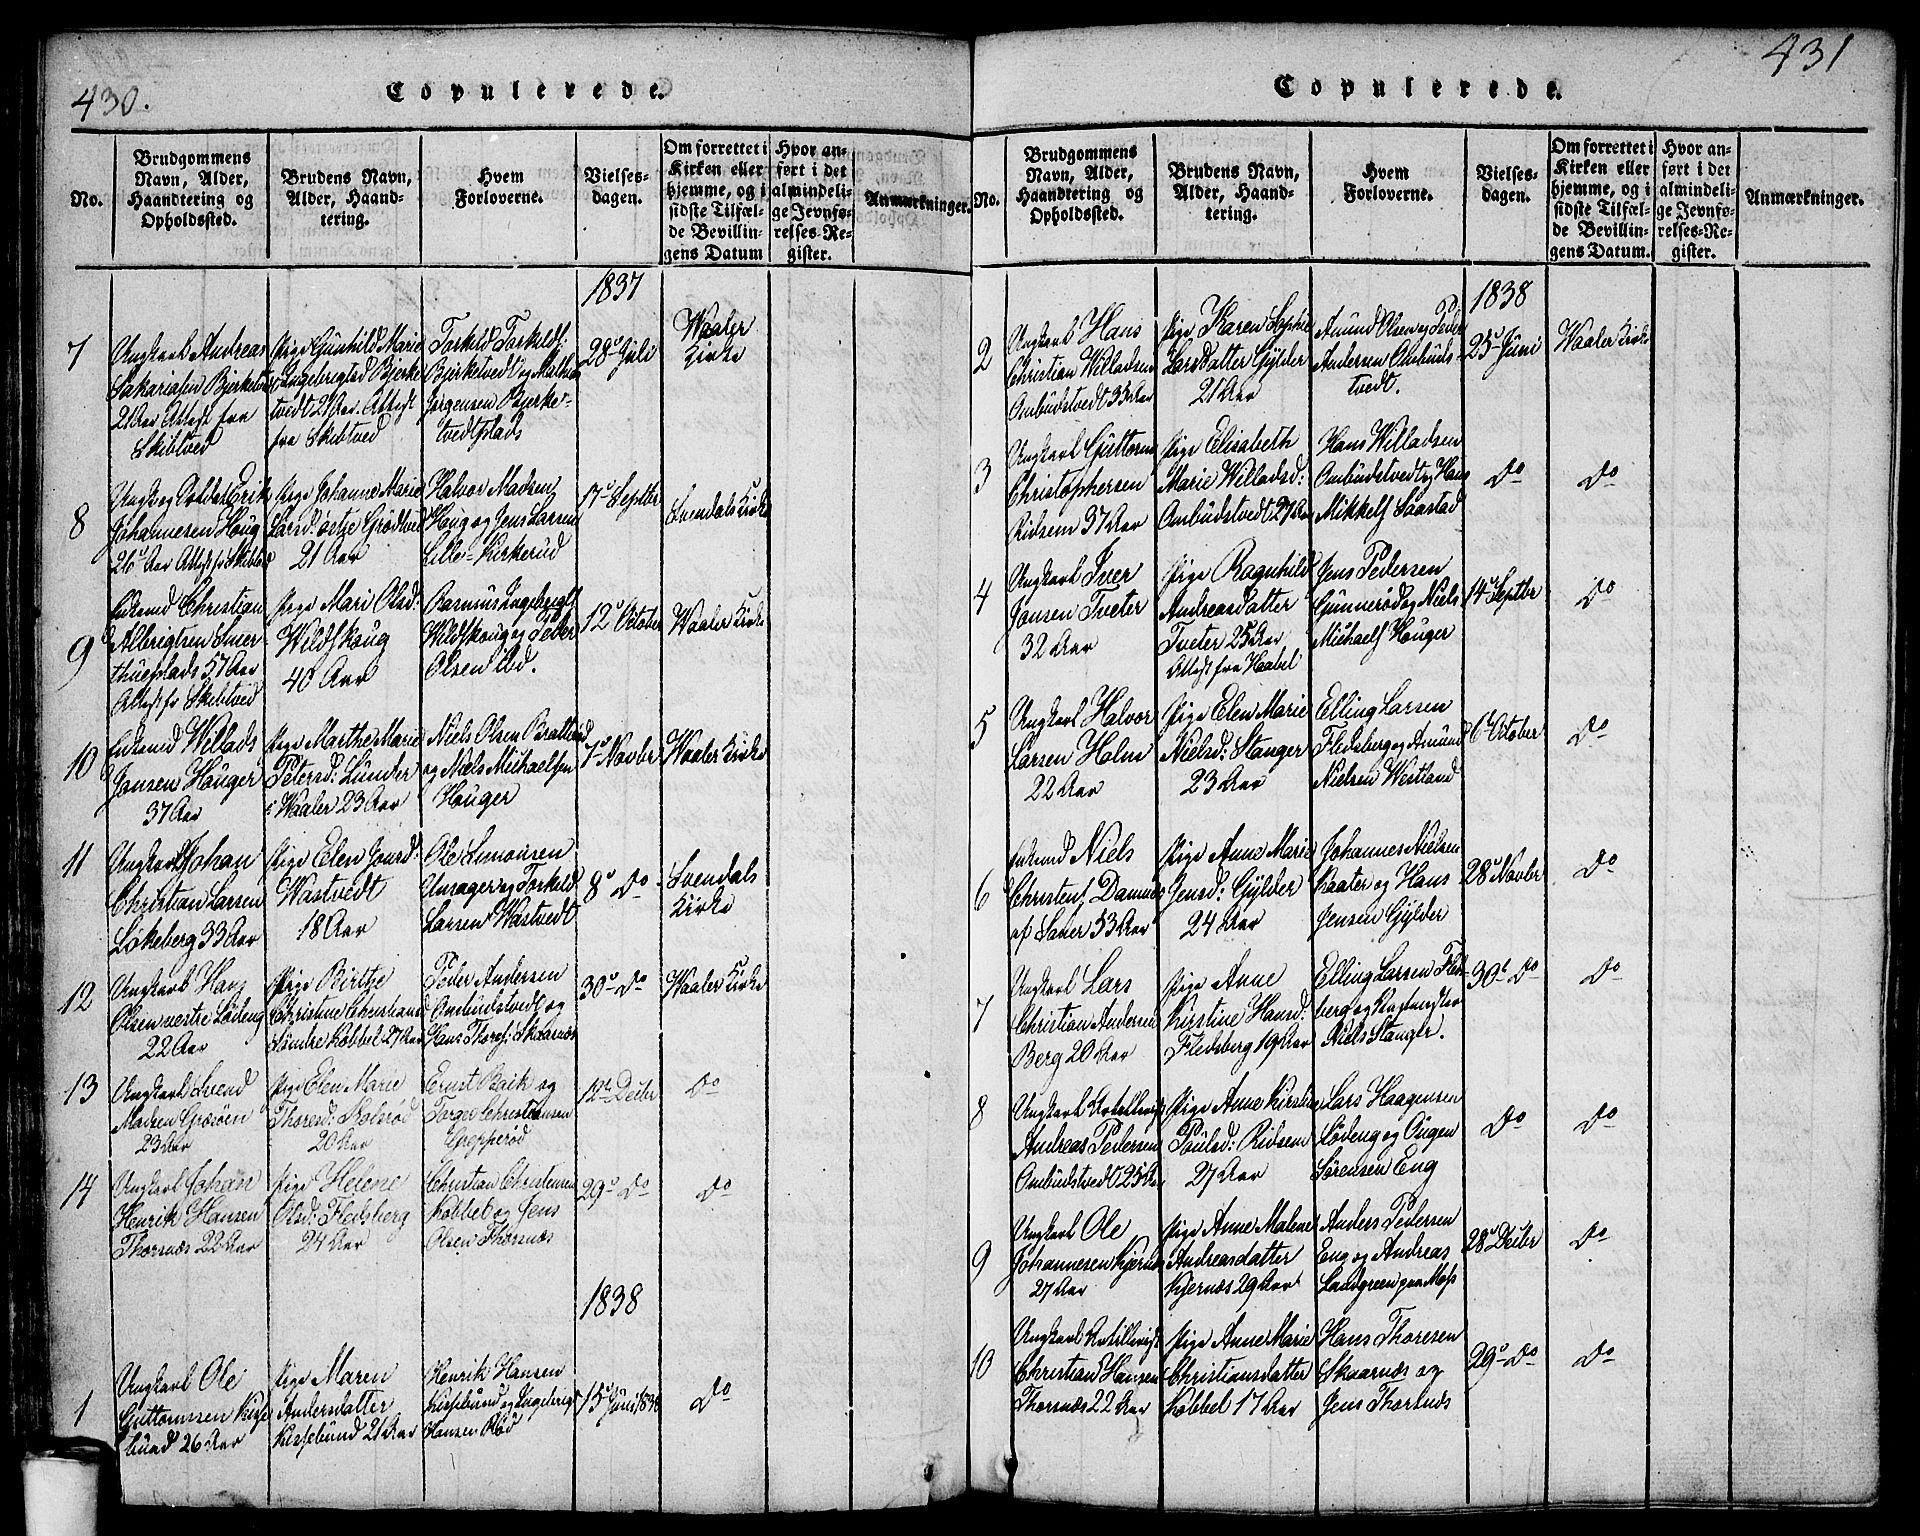 430.
Copulerede.
No.
Brudgommens
Navn, Alder,
Haandtering og
Opholdssted.
Brudens Navn,
Alder, Haand-
tering.
Hvem
Forloverne.
Vielses-
dagen.
Om forrettet i
Kirken eller
hjemme, og i
sidste Tilfæl-
de Bevillin-
gens Datum
Hvor an-
ført i det
almindeli-
ge Jevnfø-
relses-Re-
gister.
Anmærkninger.
1837
7
Ungkarl Andreas
Sakariasen Bjerketvedt
21 Aar Attest fra
Skibtved
Pige Gunhild Marie
Ingebrigtsd Bjerke
tvedt 21 Aar. Attest
fra Skibtved
Torkild Torkilds:
Bjerketvedt og Mathis
Jørgensen Bjerke-
tvedtplads
28de Juli
Waaler
Kirke
8
Ungk og Soldat Erik
Johannesen Houg
26 Aar Attest fr Skibtved
Pige Johanne Marie
Larsd østre Grødtved
21 Aar
Halvor Madsen
Houg og Jens Larsen
Lille-Kirkerud
17de Septbr
Svendals Kirke
9
Enkemd Christian
Albrigtsen Smer
thueplads 57 Aar
Attest fr Skibtved
Pige Mari Olsd:
Wildskoug
40 Aar
Rasmus Ingebrigts
Wildskoug og Peder
Olsen ibd.
12te October
Waaler Kirke
10
Enkemd Willads
Jonsen Houger
37 Aar
Pige Marthe Marie
Petersd: Lunder
i Waaler 23 Aar
Niels Olsen Bratterud
og Niels Michaelsen
Houger
7de Novbr
Waaler Kirke
11
Ungkarl Johan
Christian Larsen
Løkeberg 33 Aar
Pige Elen Jonsd:
Wastvedt
18 Aar
Ole Simonsen
Unsager og Torkild
Larsen Wastvedt
8de Do
Svendals
Kirke
12
Ungkarl Hans
Olsen vestre Lødeng
22 Aar
Pige Birthe
Christine Christiansd
Søndre Kobbel 27 Aar
Peder Andersen
Ombudstvedt og
Hans Thores: Skaarnæs
30te Do
Waaler Kirke
13
Ungkarl Svend
Madsen Grosöen
23 Aar
Pige Elen Marie
Thoresd: Nolsrød
20 Aar
Ernst Baik og
Torger Christensen
Grepperød
12te Decbr
Do
14
Ungkarl Johan
Henrik Hansen
Thorsnæs 22 Aar
Pige Helene
Olsd: Fledsberg
24 Aar
Christian Christensen
Kobbel og Jens
Olsen Thorsnæs
29de Do
Do
1838
1
Ungkarl Ole
Guttormsen Kisse
bund 26 Aar
Pige Maren
Andersdatter
Kissebund 21 Aar
Henrik Hansen
Kissebund og Ingebrigt
Hansen Rød
15de Juni 1838
Do
431
Copulerede.
No.
Brudgommens
Navn, Alder,
Haandtering og
Opholdssted.
Brudens Navn,
Alder, Haand-
tering.
Hvem
Forloverne.
Vielses-
dagen.
Om forrettet i
Kirken eller
hjemme, og i
sidste Tilfæl-
de Bevillin-
gens Datum.
Hvor an-
ført i det
almindeli-
ge Jevnfø-
relses-Re-
gister.
Anmærkninger.
1838
2
Ungkarl Hans
Christian Willadsen
Ombudstvedt 33 Aar
Pige Karen Sophie
Larsdatter Gylder
21 Aar
Amund Olsen og Peder
Andersen Ombuds-
tvedt.
25de Juni
Waaler Kirke
3
Ungkarl Guttorm
Christophersen
Ridsem 37 Aar
Pige Elisabeth
Marie Willadsd:
Ombudstvedt 27 Aar
Hans Willadsen
Ombudstvedt og Hans
Mikkels Saastad
Do
Do
4
Ungkarl Iver
Jonsen Tveter
32 Aar
Pige Ragnhild
Andreasdatter
Tveter 25 Aar
Attest fra Haabøl
Jens Pedersen
Gunnerød og Niels
Michaels Houger
14de Septbr
Do
5
Ungkarl Halvor
Larsen Holm
22 Aar
Pige Elen Marie
Nielsd: Stanger
23 Aar
Elling Larsen
Fledsberg og Amund
Nielsen Westland
6te October
Do
6
Enkemd Niels
Christens Damm
af Saner 53 Aar
Pige Anne Marie
Jensd: Gylder
24 Aar
Johannes Nielsen
Kaater og Hans
Jensen Gylder
28de Novbr
Do
7
Ungkarl Lars
Christian Andersen
Berg 20 Aar
Pige Anne
Kirstine Hansd:
Fledsberg 19 Aar
Elling Larsen Fleds-
berg og
Niels Stanger.
30te Do
Do
8
Ungkarl
Andreas Pedersen
Ombudstvedt 25 Aar
Pige Anne Kirstine
Poulsd: Ridsem
27 Aar
Lars Haagensen
Lødeng og Ougen
Sørensen Eng
Do
Do
9
Ungkarl Ole
Johannesen Kjernæs
27 Aar
Pige Anne Malene
Andreasdatter
Kjernæs 29 Aar
Anders Pedersen
Eng og Andreas
Landgreen paa Moss
28de Decbr
Do
10
Ungkarl
Christian Hansen
Thorsnæs 22 Aar
Pige Anne Marie
Christiansdatter
Kobbel 17 Aar
Hans Thoresen
Skaarnæs og
Jens Thorsnæs
29de Do
Do